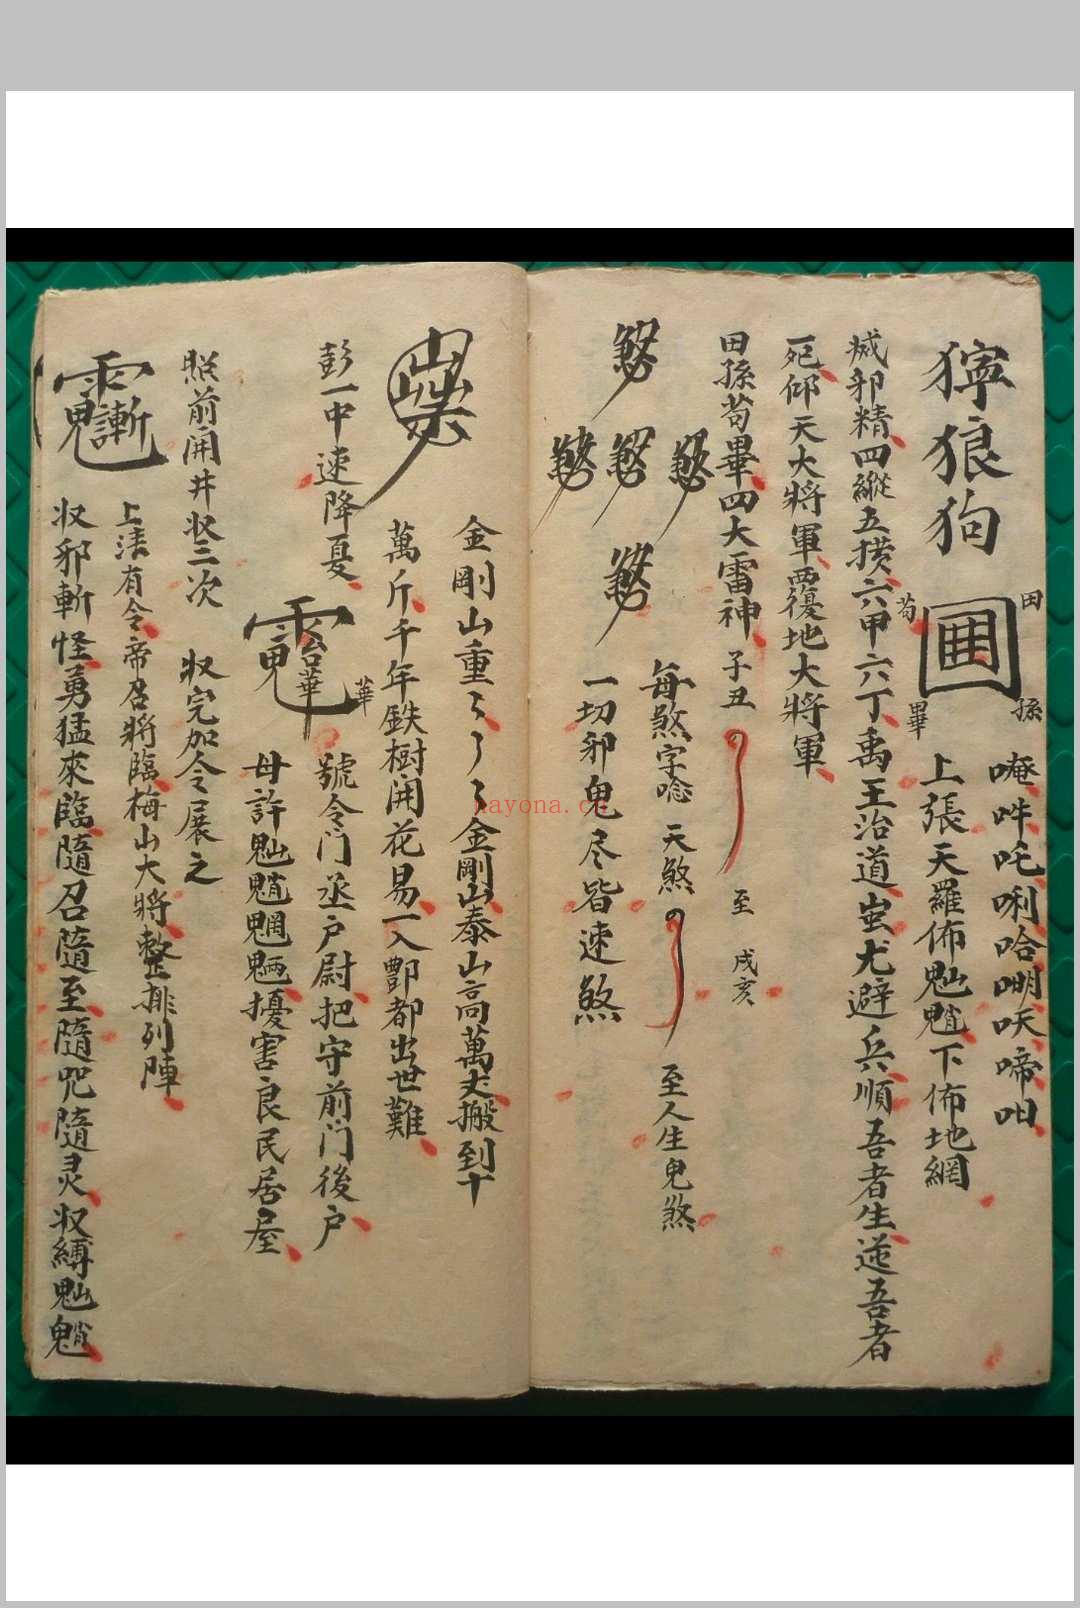 獰狼狗
田
苟
畢
孫
唵吽吒唎哈𠵇呋啼呾
上張天羅佈魀魈下佈地網
滅邪精四縱五撗六甲六丁禹王治道蚩尤避兵順吾者生逆吾者
死仰天大將軍覆地大將軍
田孫苟畢四大雷神子丑
至戌亥
每煞字唸天煞
至人生鬼煞
一切邪鬼尽皆速煞
金剛山重〻〻〻金剛山泰山高萬丈搬到十
萬斤千年鉄樹開花易一入酆都出世難
彭一中速降戛
華
號令门丞户尉把守前门後户
毋許魀魈魍魎擾害良民居屋
照前開井収三次
収完加令展之
上清有令帝召將臨梅山大將整排列陣
収邪斬怪勇猛來臨隨召隨至隨咒隨灵収縛魀魈
nayona.cn